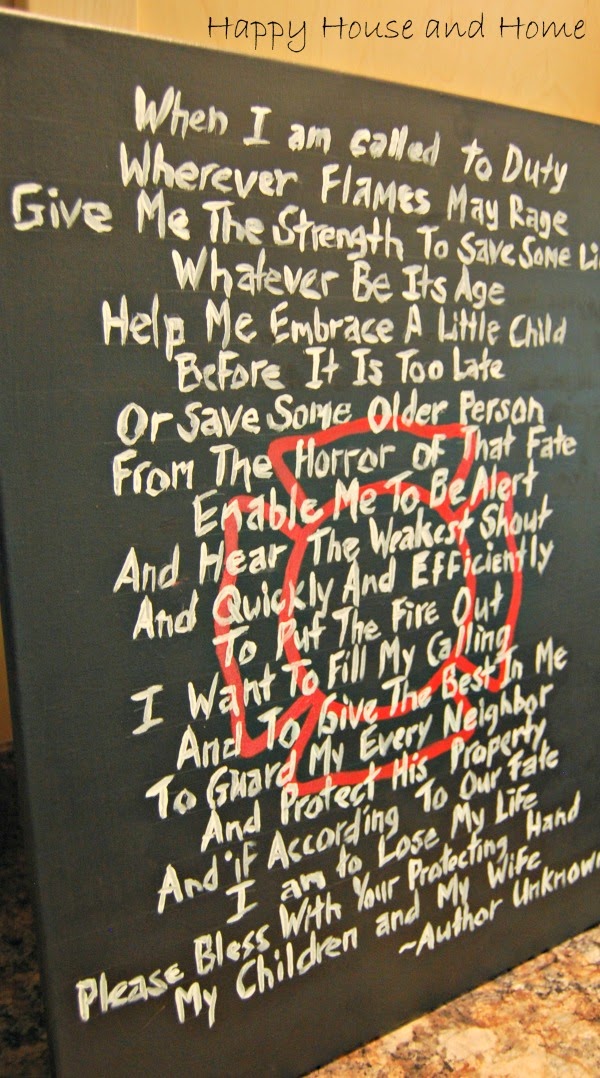 Happy House and Home
When I am called to Duty
Wherever Flames May Rage
Give Me The Strength To Save Some Li
Whatever Be Its Age
Help Me Embrace A Little Child
Before It Is Too Late
Or Save Some Older Person
From The Horror of That Fate
Enable Me To Be Alert
And Hear The Weakest Shout
And Quickly And Efficiently
To Put The Fire Out
I Want To Fill My Calling
And To Give The Best In Me
To Guard My Every Neighbor
And Protect His Property
And if According To Our Fate
I am to Lose My Life
Please Bless With Your Protecting Hand
My Children and My Wife
~Author Unknown